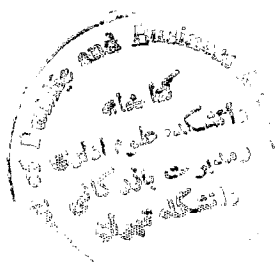 of Public and Business
کتابخانه
دانشکده علوم اداری
و مدیریت بازرگانی
دانشگاه تهران